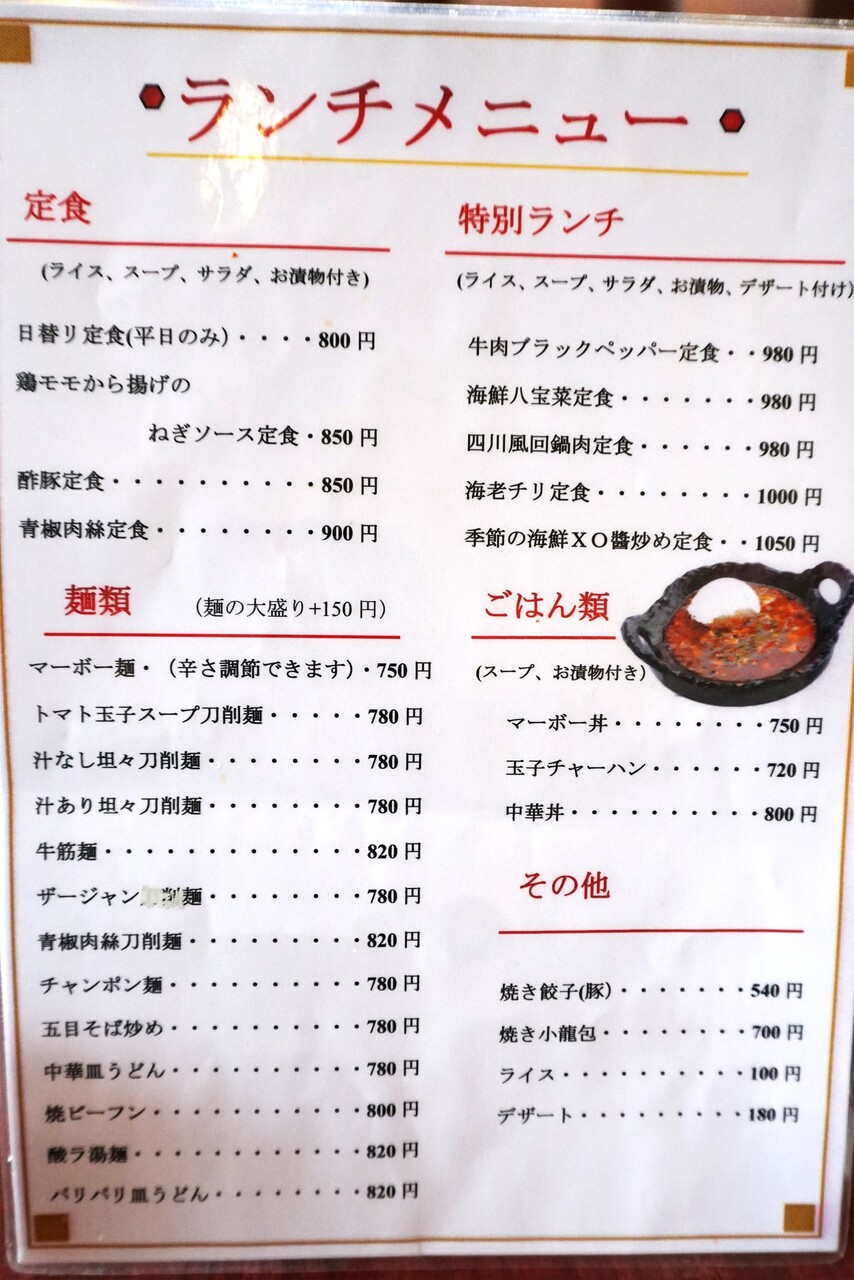 ランチメニュー
定食
(ライス、スープ、サラダ、お漬物付き)
日替り定食(平日のみ)・・・・800 円
鶏モモから揚げの
ねぎソース定食・850 円
酢豚定食・・・・・・・・・・850 円
青椒肉絲定食・・・・・・・・900 円
麺類 (麺の大盛り+150 円)
マーボー麺・(辛さ調節できます)・750 円
トマト玉子スープ刀削麺・・・・・780 円
汁なし坦々刀削麺・・・・・・・・780 円
汁あり坦々刀削麺・・・・・・・・780 円
牛筋麺・・・・・・・・・・・・・820 円
ザージャン 麺・・・・・・・・780 円
青椒肉絲刀削麺・・・・・・・・・820 円
チャンポン麺・・・・・・・・・・780 円
五目そば炒め・・・・・・・・・・780 円
中華皿うどん・・・・・・・・・・780 円
焼ビーフン・・・・・・・・・・・800 円
酸ラ湯麺・・・・・・・・・・・・820 円
パリパリ皿うどん・・・・・・・・820 円
特別ランチ
(ライス、スープ、サラダ、お漬物、デザート付け)
牛肉ブラックペッパー定食・・980 円
海鮮八宝菜定食・・・・・・・980 円
四川風回鍋肉定食・・・・・・980 円
海老チリ定食・・・・・・・・1000 円
季節の海鮮ＸＯ醬炒め定食・・1050 円
ごはん類
(スープ、お漬物付き)
マーボー丼・・・・・・・・750 円
玉子チャーハン・・・・・・720 円
中華丼・・・・・・・・・・800 円
その他
焼き餃子(豚)・・・・・・・540 円
焼き小龍包・・・・・・・・700 円
ライス・・・・・・・・・・100 円
デザート・・・・・・・・・180 円